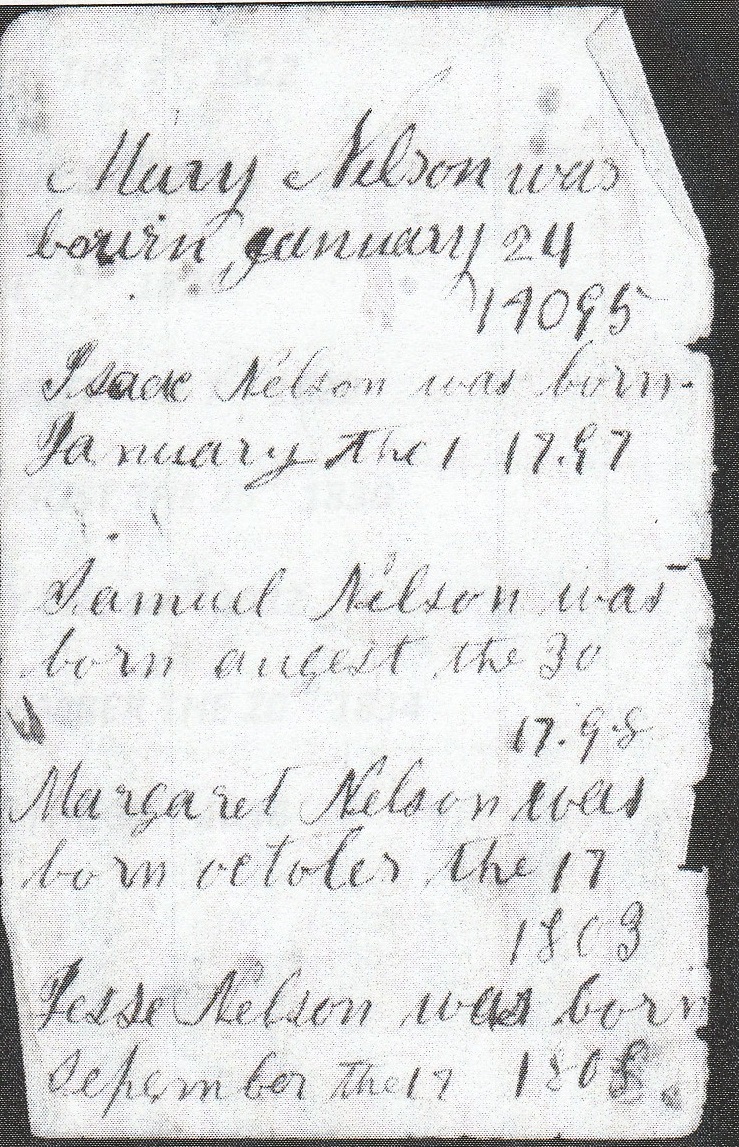 Mary Nelson was
bourin January 24
14095
Isaac Nelson was born
January the 1 17.97
Samuel Nelson was
born augest the 30
17.98
Margaret Nelson was
born octoler the 17
1803
Jesse Nelson was born
Sepember the 17 1808.